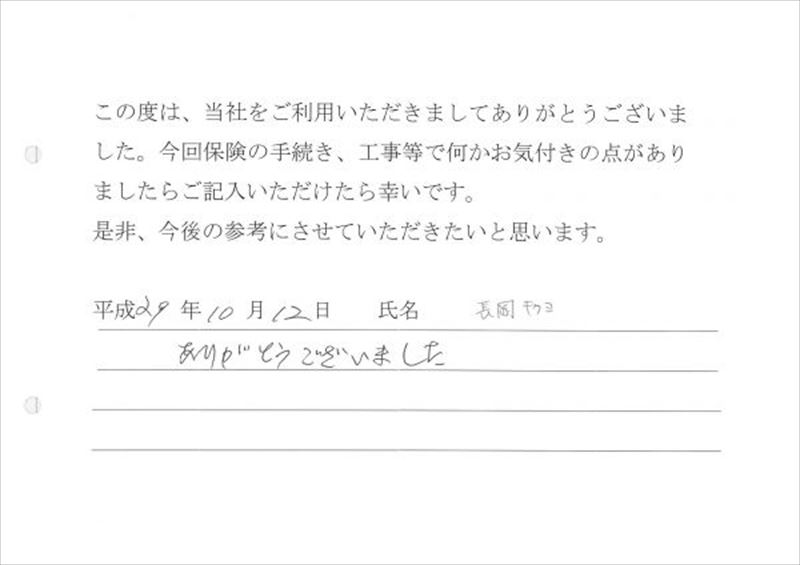 この度は、当社をご利用いただきましてありがとうございま
した。今回保険の手続き、工事等で何かお気付きの点があり
ましたらご記入いただけたら幸いです。
是非、今後の参考にさせていただきたいと思います。
平成29年10月12日 氏名 長岡キクヨ
ありがとうございました